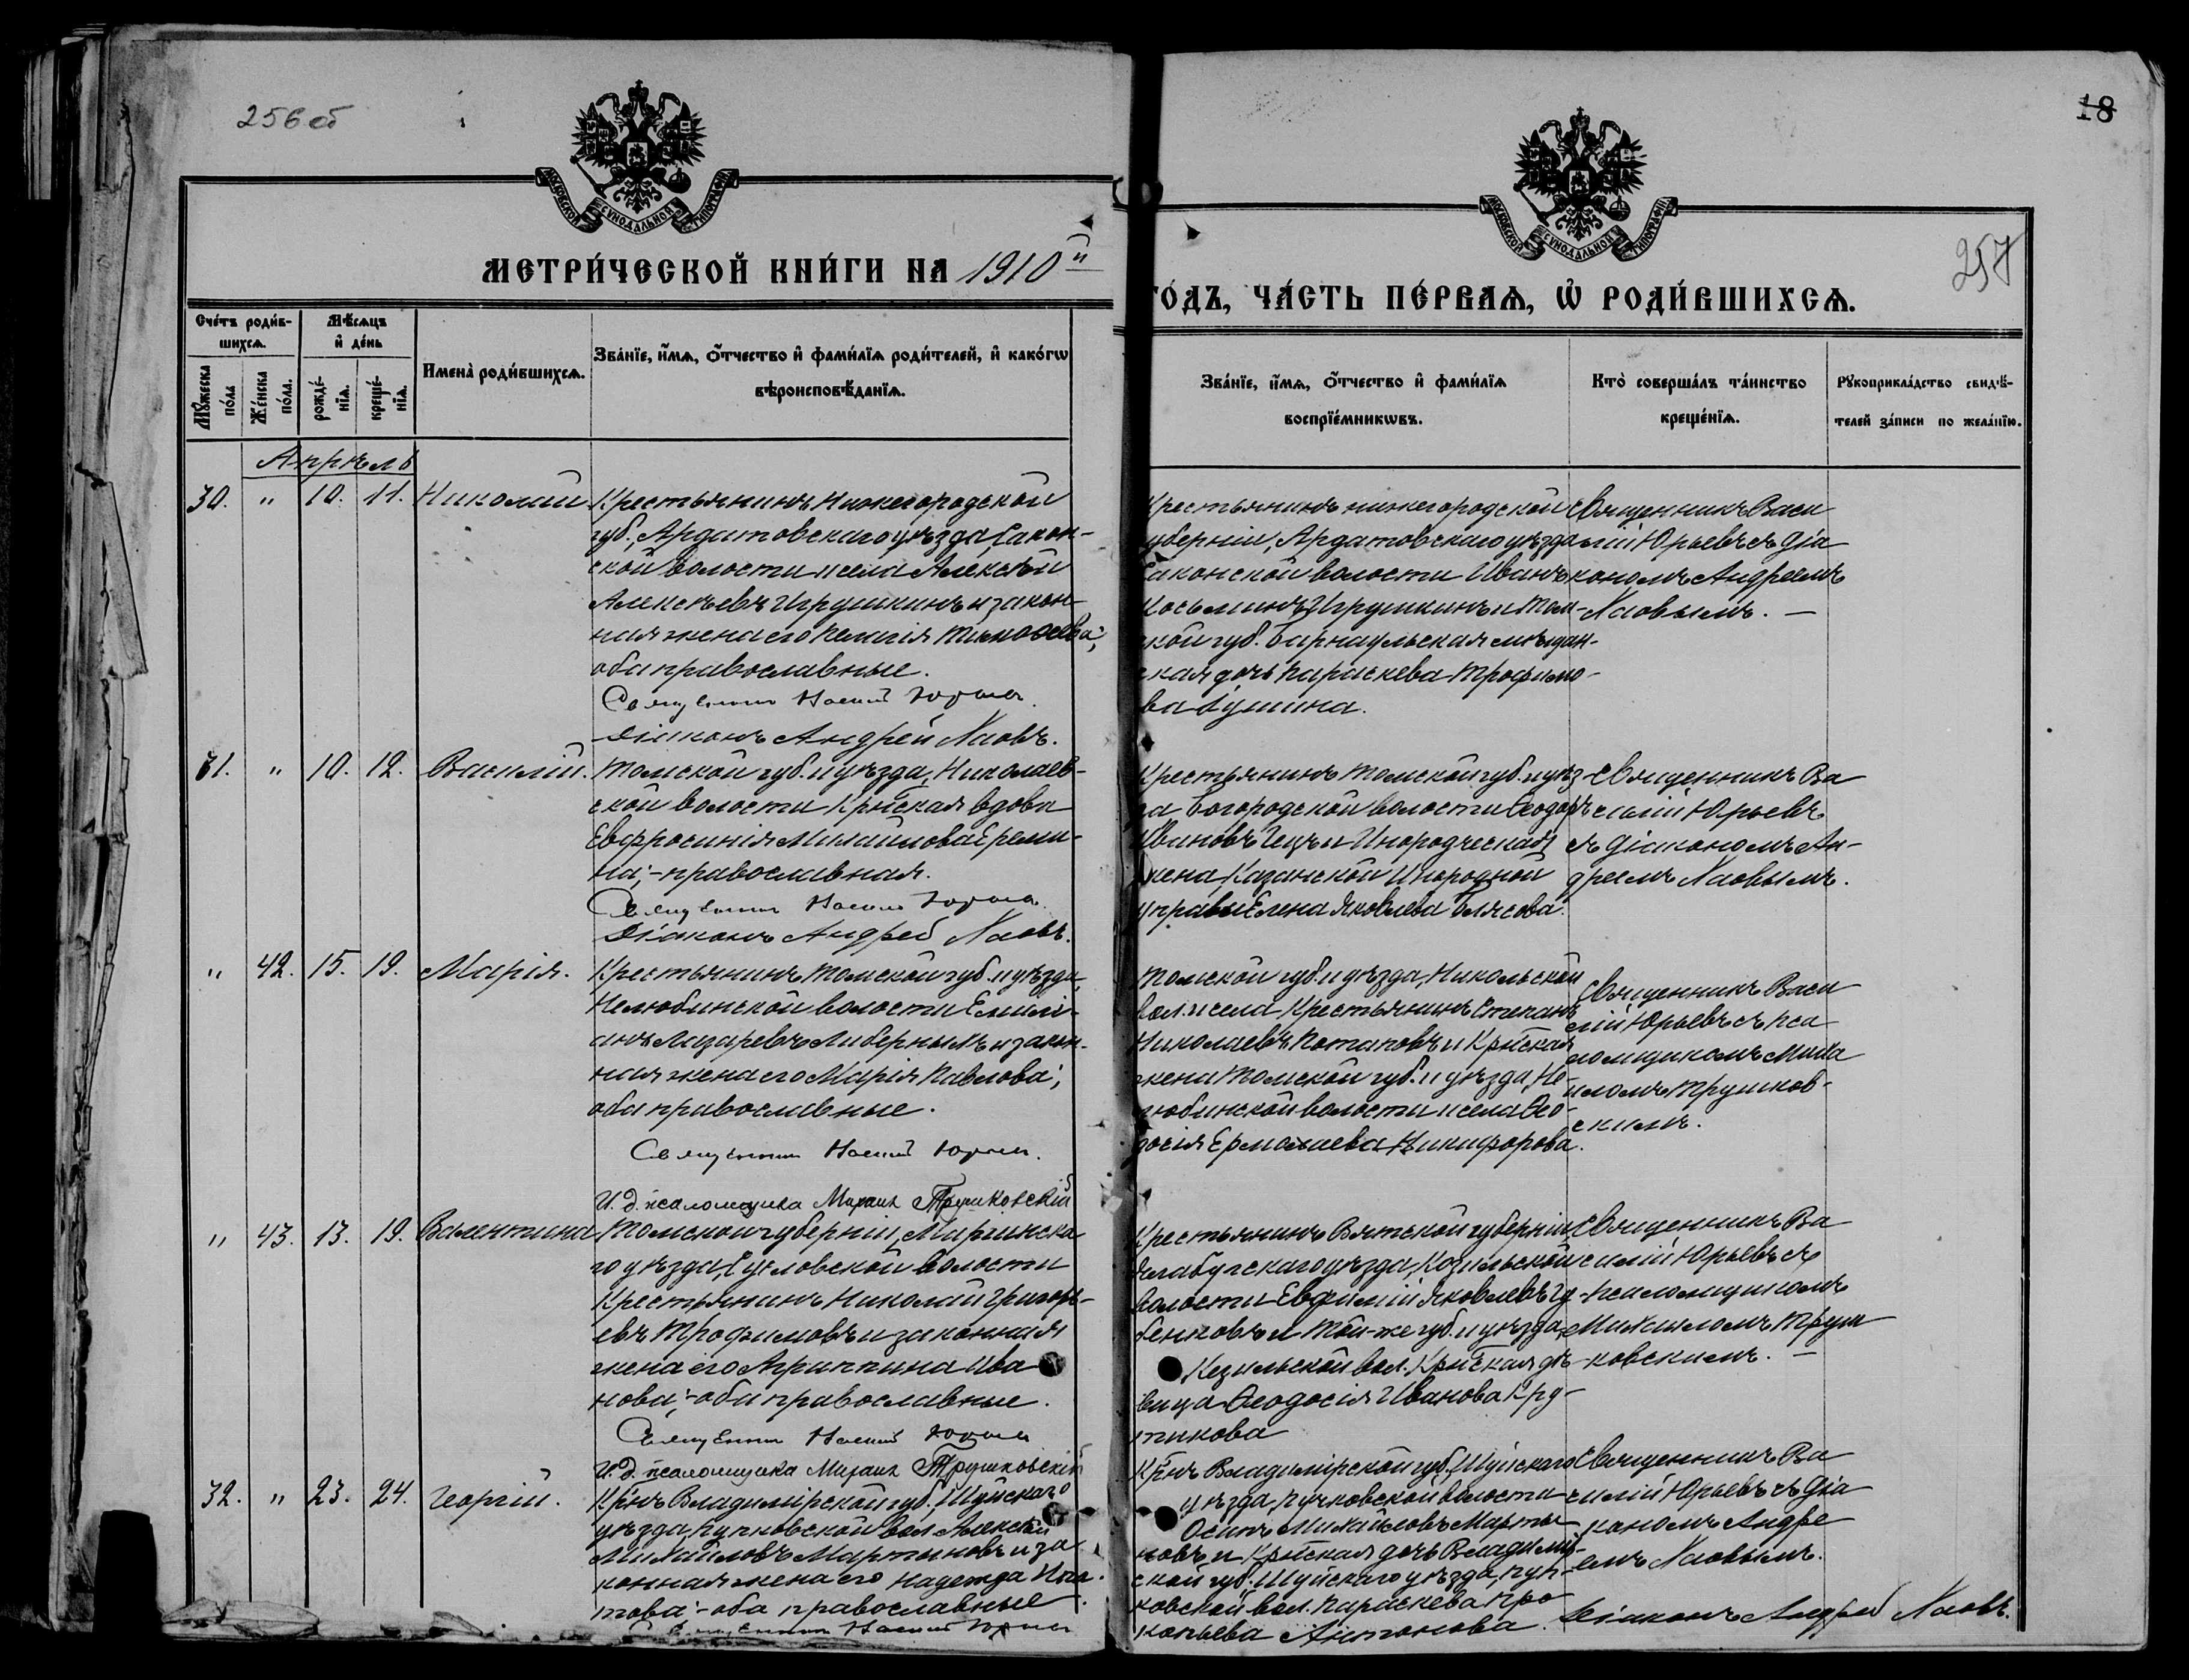 256 об
18
257
МОСКОВСКОЙ СѴНОДАЛЬНОЙ ТИПОГРАФІИ
МОСКОВСКОЙ СѴНОДАЛЬНОЙ ТИПОГРАФІИ
МЕТРИ́ЧЕСКОЙ КНИ́ГИ НА 1910й
ГО́ДЪ, ЧА́СТЬ ПЕ́РВАѦ, Ѡ҆ РОДИ́ВШИХСѦ.
Сче́тъ роди́в-
шихсѧ.
Мѣ́сѧцъ
и҆ де́нь
Мꙋ́жеска по́ла
Же́нска по́ла.
рожде́-
нїѧ.
креще́-
нїѧ.
Имена̀ роди́вшихсѧ.
Зва́нїе, и҆́мѧ, ѻ҆́тчество и҆ фами́лїѧ роди́телей, и҆ како́гѡ
вѣроисповѣ́данїѧ.
Зва́нїе, и҆́мѧ, ѻ҆́тчество и҆ фами́лїѧ
воспрїе́мникѡвъ.
Кто̀ соверша́лъ та́инство
креще́нїѧ.
Рꙋкоприкла́дство свидѣ́-
телей за́писи по жела́нїю.
Апрѣль
30. " 10. 11. Николай
Крестьянинъ Нижегородской
губ., Ардатовскаго уѣзда, Сакон-
ской волости и села Алексѣй
Алексѣевъ Игрушкинъ и закон-
ная жена его Пелагія Тимофеева;
оба православные.
Священникъ Василій Юрьевъ
Діаконъ Андрей Наовъ.
Крестьянинъ Нижегородской
уберніи, Ардатовскаго уѣзда
Саконской волости Иванъ
Косьминъ Игрушкинъ и Том-
ской губ. Барнаульская мѣщан-
ская дочь Параскева Трофимо-
ва Бушина.
Священникъ Васи
лій Юрьевъ съ діа
кономъ Андреемъ
Наовымъ. —
31. " 10. 12. Василій.
Томской губ. и уѣзда, Николаев-
ской волости Кр-нская вдова
Евфросинія Михайлова Ереми-
на; - православная.
Священникъ Василій Юрьевъ
Діаконъ Андрей Наовъ.
Крестьянинъ Томской губ. и уѣз-
да Богородской волости Ѳеодоръ
Ивановъ и Инородческая
жена Казанской Инородной
управы Елена Яковлева
Священникъ Ва
силій Юрьевъ
съ діакономъ Ан-
дреемъ Наовымъ.
" 42. 15. 19. Марія.
Крестьянинъ Томской губ. и уѣзда,
Нелюбинской волости Емилі-
анъ Лазаревъ и закон-
ная жена его Марія Павлова;
оба православные.
Священникъ Василій Юрьевъ.
И. д. псаломщика Михаилъ Трушковскій
Томской губ. и уѣзда, Никольской
вол. и села Крестьянинъ Степанъ
Николаевъ Потаповъ и Кр-нская
жена Томской губ. и уѣзда, Не-
любинской волости и села Ѳео-
досія Ермолаева Никифорова.
Священникъ Васи
лій Юрьевъ съ пса
ломщикомъ Миха
иломъ Трушков-
скимъ.
" 43. 13. 19. Валентина
Томской губерніи, Маріинска
го уѣзда, Сусловской волости
Крестьянинъ Николай Григорь-
евъ Трофимовъ и законная
жена его Агриппина Ива
нова; - оба православные.
Священникъ Василій Юрьевъ
И. д. псаломщика Михаилъ Трушковскій
Крестьянинъ Вятской губерніи
Елабугскаго уѣзда, Козыльской
волости Евфимій Яковлевъ Гу-
бенковъ и той-же губ. и уѣзда,
Козыльской вол. Кр-нская дѣ-
вица Ѳеодосія Иванова Кру-
тикова
Священникъ Ва
силій Юрьевъ съ
псаломщикомъ
Михаиломъ Труш
ковскимъ. —
32. " 23. 24. Георгій.
Кр-нъ Владимірской губ., Шуйскаго
уѣзда, Пупковской вол. Алексѣй
Михайловъ Мартыновъ и за
конная жена его Надежда
това; - оба православные
Священникъ Василій Юрьевъ
Кр-нъ Владимірской губ., Шуйскаго
уѣзда, Пупковской волости
Осипъ Михайловъ Марты
новъ и Кр-нская дочь Владимір-
ской губ. Шуйскаго уѣзда, Пуп-
ковской вол. Параскева Про
копьева Антонова.
Священникъ Ва
силій Юрьевъ съ діа
кономъ Андре
емъ Наовымъ.
Діаконъ Андрей Наовъ.